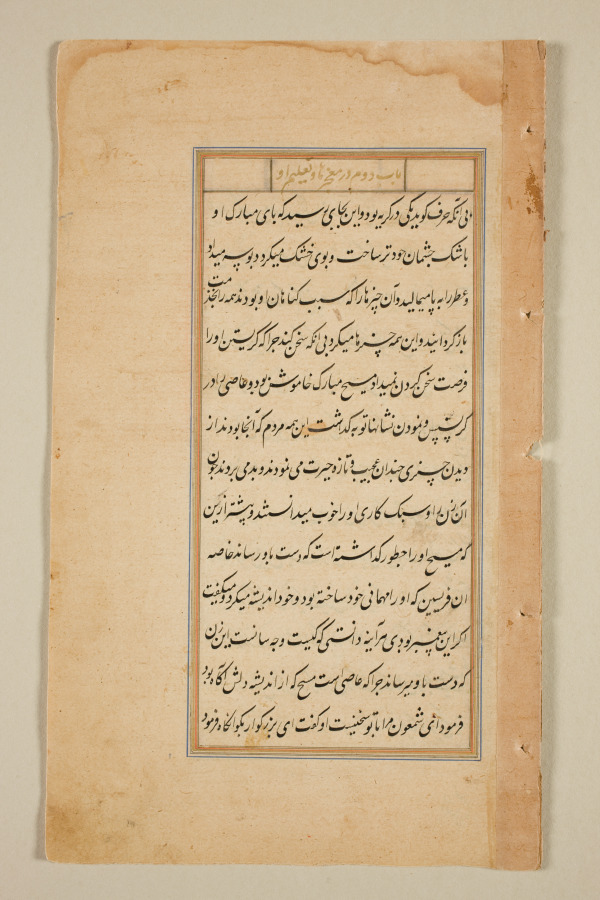 باب دوم در معجزها و تعلیم او
بی آنکه حرف گوید یکی در گریه بود و این بجای بوسید که پای مبارک او
باشک چشمان خود تر ساخت و بموی خشک میکرد و بوسه میداد
و عطر را به پا میمالید و آن چیزها را که سبب گناهان او بودند همه را بخدمت
باز گردانید و این همه چیزها میکرد بی آنکه سخن کند چرا که گریستن او را
فرصت سخن کردن نمیداد مسیح مبارک خاموش بود و عاصی را در
گریستن و نمودن نشانها توبه گذاشت این همه مردم که آنجا بودند از
دیدن چیزی چندان عجیب و تازه حیرت می نمودند و بدمی بردند چون
آن زن را و سبک کاری او را خوب میدانستند و بیشتر ازین
که مسیح او را چطور گذاشته است که دست باو رساند خاصه
آن فریسین که او را مهمانی خود ساخته بود و خود اندیشه میکرد و میگفت
اگر این پیغمبر بودی هرآینه دانستی که کیست و چه سانست این زن
که دست باو میرساند چرا که عاصی ست مسیح که از اندیشه دلش آگاه بود
فرمود ای شمعون مرا با تو سخنیست او گفت ای بزرگوار بگو آنگاه فرمود